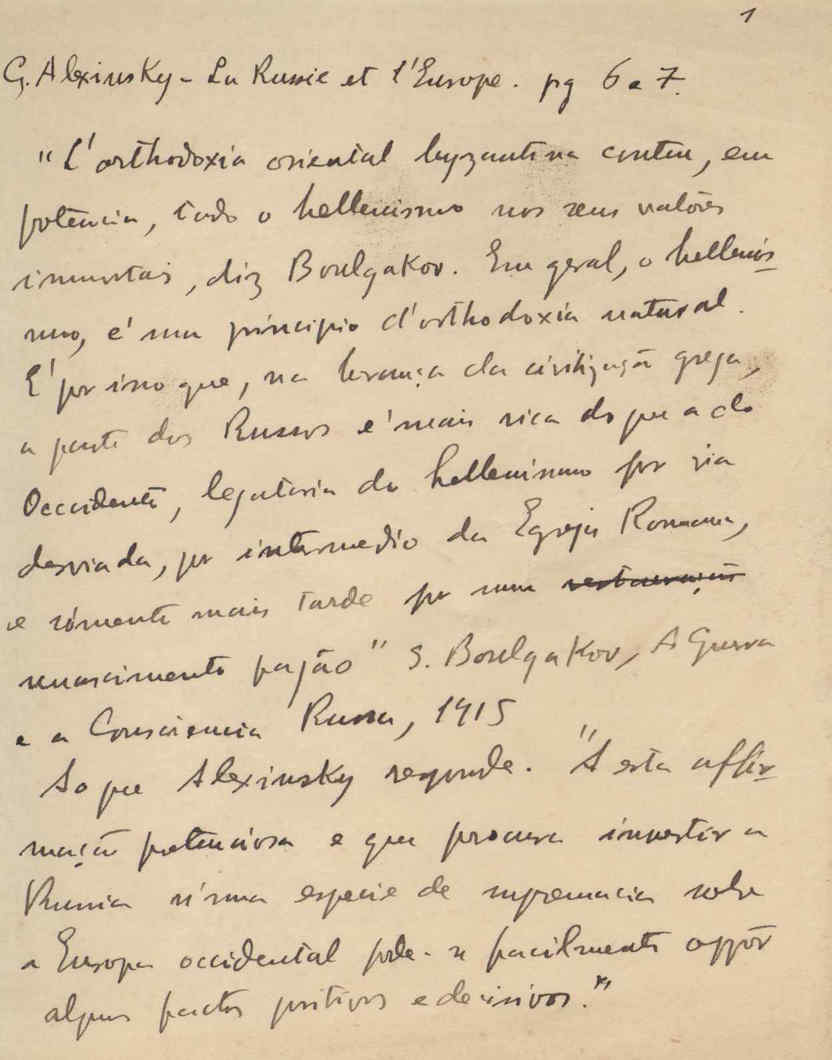 1
G. Alexinsky - La Russie et l'Europe. pg 6 a 7.
"L'orthodoxia oriental byzantina contem, em
potencia, todo o hellenismo nos seus valôres
immortais, diz Boulgakov. Em geral, o hellenis-
mo, é um principio d'orthodoxia natural.
É por isso que, na herança da civilização grega,
a parte dos Russos é mais rica do que a do
Occidente, legataria do hellenismo por via
desviada, por intermedio da Egreja Romana,
e sómente mais tarde por um restauração
renascimento pagão" S. Boulgakov, A Guerra
e a Consciencia Russa, 1915
Ao que Alexinsky responde. "A esta affir-
mação pretenciosa e que procura investir a
Russia n'uma especie de supremacia sobre
a Europa occidental pode-se facilmente oppôr
alguns factos positivos e decisivos."